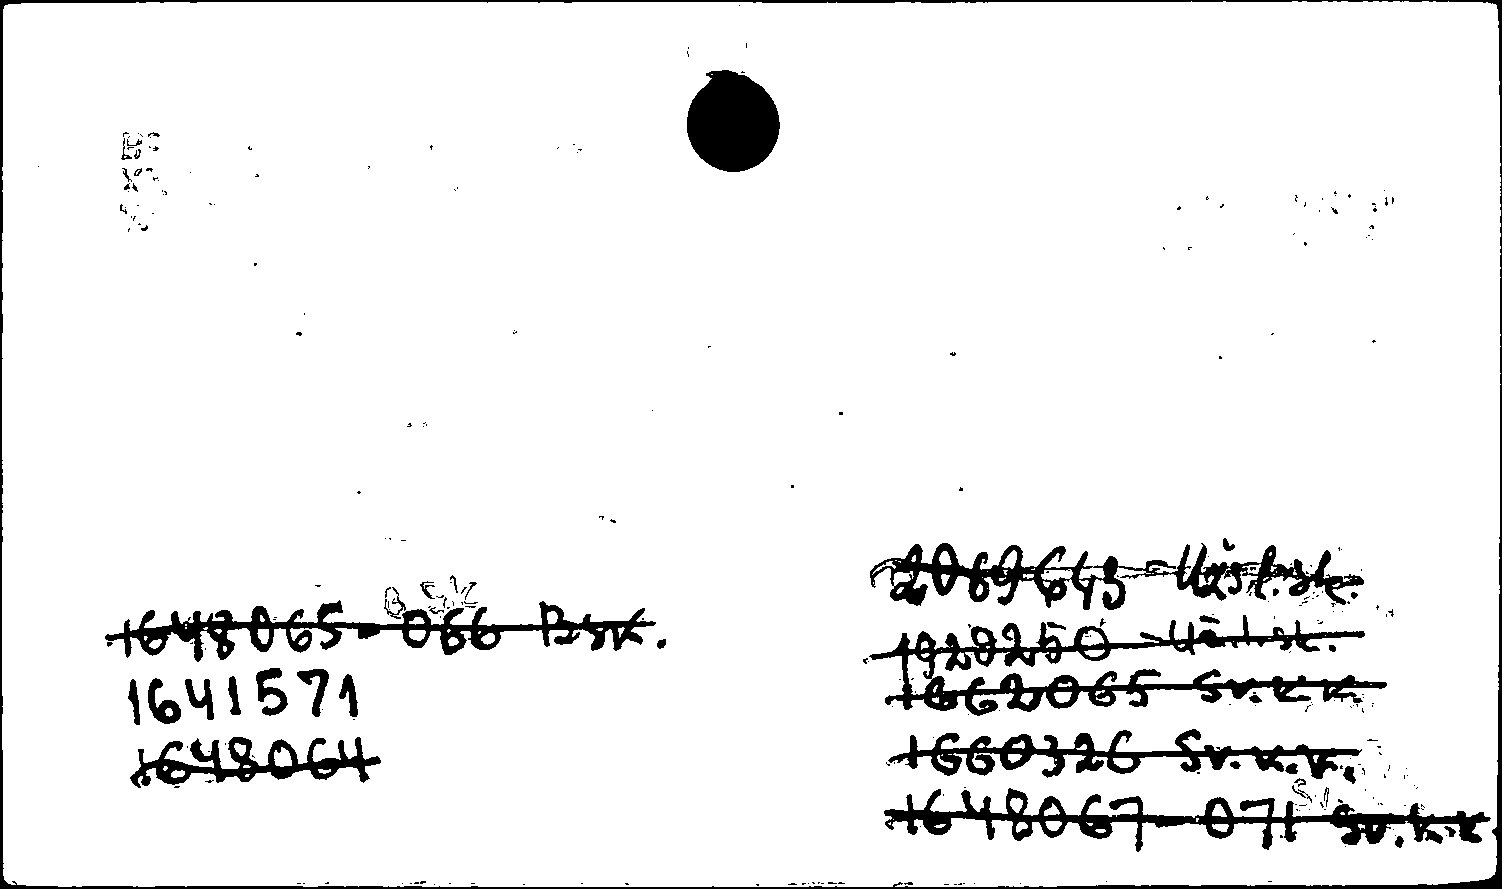 1648065 - 066 B.sk.
1641571
1648064
2089643 - Väst.sk.
1928250 -
1662065 Sv.k.k.
1660326 Sv.k.k.
1648067 - 071 Sv.k.k.